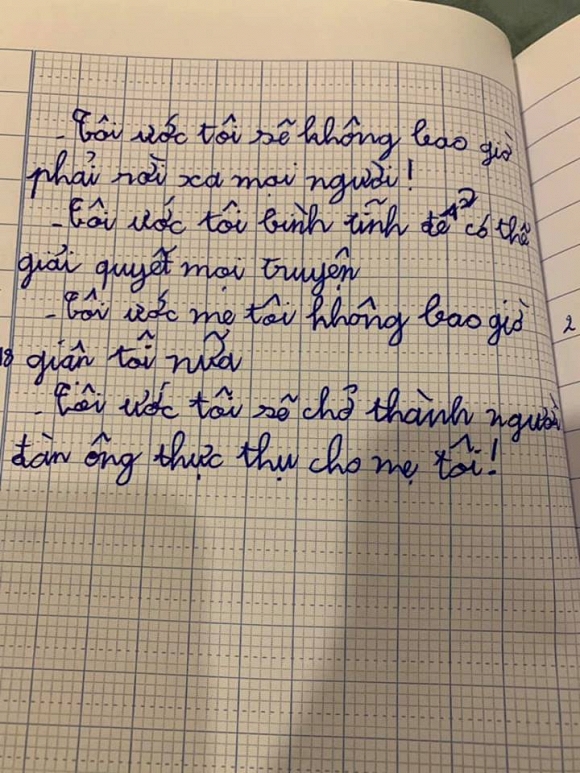 - Tôi ước tôi sẽ không bao giờ
phải rời xa mọi người!
- Tôi ước tôi bình tĩnh để có thể
giải quyết mọi truyện
- Tôi ước mẹ tôi không bao giờ
giận tôi nữa
- Tôi ước tôi sẽ chở thành người
đàn ông thực thụ cho mẹ tôi!
2
18